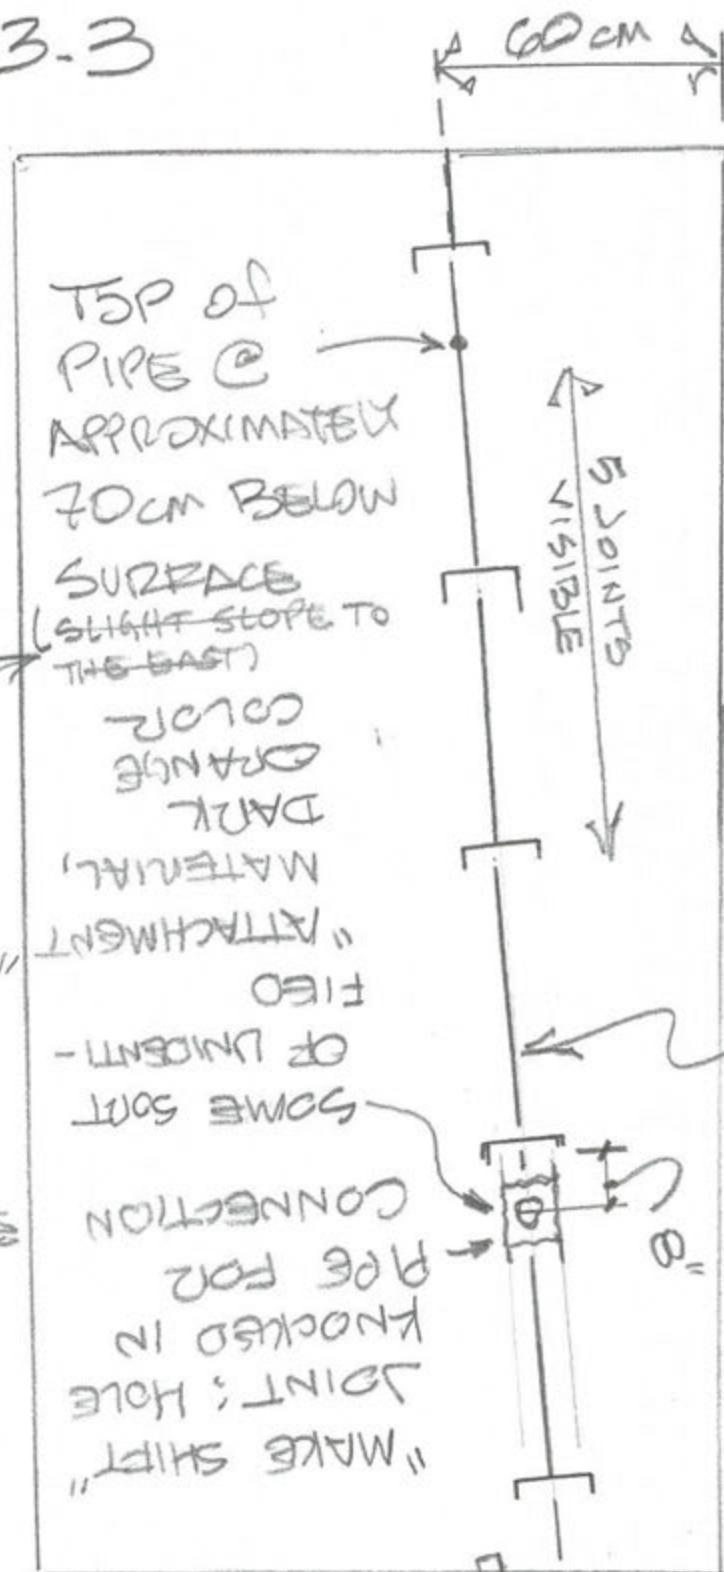 3-3
60 cm
TOP of
PIPE @
APPROXIMATELY
70cm BELOW
SURFACE
(SLIGHT SLOPE TO
THE EAST)
5 JOINTS
VISIBLE
"MAKE SHIFT"
JOINT; HOLE
KNOCKED IN
PIPE FOR
CONNECTION
SOME SORT
OF UNIDENTI-
FIED
"ATTACHMENT
MATERIAL,
DARK
ORANGE
COLOR
8"